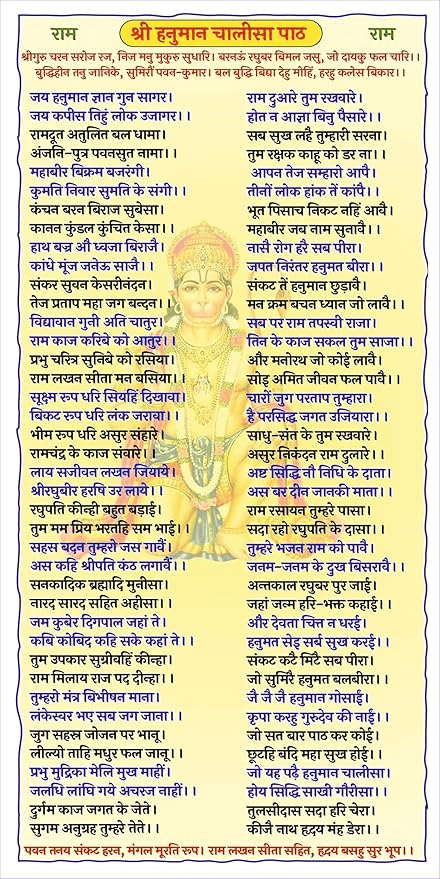 राम
श्री हनुमान चालीसा पाठ
राम
श्रीगुरु चरन सरोज रज, निज मनु मुकुरु सुधारि। बरनऊं रघुबर बिमल जसु, जो दायकु फल चारि।।
बुद्धिहीन तनु जानिके, सुमिरौं पवन-कुमार। बल बुद्धि बिद्या देहु मोहिं, हरहु कलेस बिकार।।
जय हनुमान ज्ञान गुन सागर।
जय कपीस तिहुं लोक उजागर।।
रामदूत अतुलित बल धामा।
अंजनि-पुत्र पवनसुत नामा।।
महाबीर बिक्रम बजरंगी।
कुमति निवार सुमति के संगी।।
कंचन बरन बिराज सुबेसा।
कानन कुंडल कुंचित केसा।।
हाथ बज्र औ ध्वजा बिराजै।
कांधे मूंज जनेऊ साजै।।
संकर सुवन केसरीनंदन।
तेज प्रताप महा जग बन्दन।।
विद्यावान गुनी अति चातुर।
राम काज करिबे को आतुर।।
प्रभु चरित्र सुनिबे को रसिया।
राम लखन सीता मन बसिया।।
सूक्ष्म रूप धरि सियहिं दिखावा।
बिकट रूप धरि लंक जरावा।।
भीम रूप धरि असुर संहारे।
रामचंद्र के काज संवारे।।
लाय सजीवन लखन जियाये।
श्रीरघुबीर हरषि उर लाये।।
रघुपति कीन्ही बहुत बड़ाई।
तुम मम प्रिय भरतहि सम भाई।।
सहस बदन तुम्हरो जस गावैं।
अस कहि श्रीपति कंठ लगावैं।।
सनकादिक ब्रह्मादि मुनीसा।
नारद सारद सहित अहीसा।।
जम कुबेर दिगपाल जहां ते।
कबि कोबिद कहि सके कहां ते।।
तुम उपकार सुग्रीवहिं कीन्हा।
राम मिलाय राज पद दीन्हा।।
तुम्हरो मंत्र बिभीषन माना।
लंकेस्वर भए सब जग जाना।।
जुग सहस्र जोजन पर भानू।
लील्यो ताहि मधुर फल जानू।।
प्रभु मुद्रिका मेलि मुख माहीं।
जलधि लांघि गये अचरज नाहीं।।
दुर्गम काज जगत के जेते।
सुगम अनुग्रह तुम्हरे तेते।।
राम दुआरे तुम रखवारे।
होत न आज्ञा बिनु पैसारे।।
सब सुख लहै तुम्हारी सरना।
तुम रक्षक काहू को डर ना।।
आपन तेज सम्हारो आपै।
तीनों लोक हांक तें कांपै।।
भूत पिसाच निकट नहिं आवै।
महाबीर जब नाम सुनावै।।
नासै रोग हरै सब पीरा।
जपत निरंतर हनुमत बीरा।।
संकट तें हनुमान छुड़ावै।
मन क्रम बचन ध्यान जो लावै।।
सब पर राम तपस्वी राजा।
तिन के काज सकल तुम साजा।।
और मनोरथ जो कोई लावै।
सोइ अमित जीवन फल पावै।।
चारों जुग परताप तुम्हारा।
है परसिद्ध जगत उजियारा।।
साधु-संत के तुम रखवारे।
असुर निकंदन राम दुलारे।।
अष्ट सिद्धि नौ निधि के दाता।
अस बर दीन जानकी माता।।
राम रसायन तुम्हरे पासा।
सदा रहो रघुपति के दासा।।
तुम्हरे भजन राम को पावै।
जनम-जनम के दुख बिसरावै।।
अन्तकाल रघुबर पुर जाई।
जहां जन्म हरि-भक्त कहाई।।
और देवता चित्त न धरई।
हनुमत सेइ सर्ब सुख करई।।
संकट कटै मिटै सब पीरा।
जो सुमिरै हनुमत बलबीरा।।
जै जै जै हनुमान गोसाईं।
कृपा करहु गुरुदेव की नाईं।।
जो सत बार पाठ कर कोई।
छूटहि बंदि महा सुख होई।।
जो यह पढ़ै हनुमान चालीसा।
होय सिद्धि साखी गौरीसा।।
तुलसीदास सदा हरि चेरा।
कीजै नाथ हृदय मंह डेरा।।
पवन तनय संकट हरन, मंगल मूरति रूप। राम लखन सीता सहित, हृदय बसहु सुर भूप।।